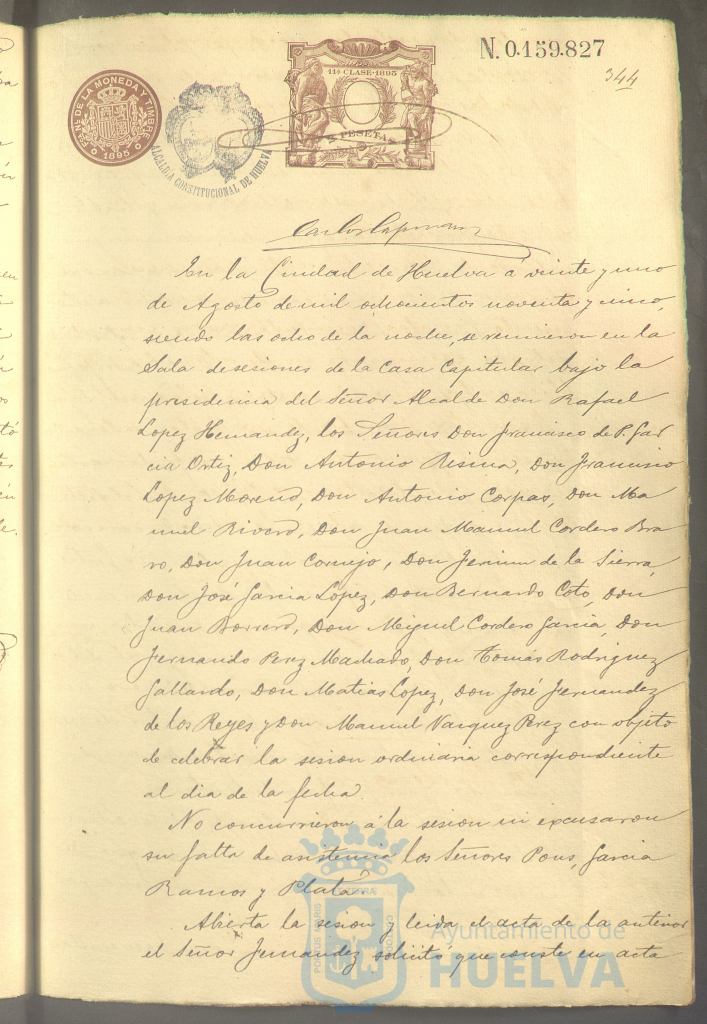 Fca. NAL. DE LA MONEDA Y TIMBRE
1895
ALCALDIA CONSTITUCIONAL DE HUELVA
11ª CLASE·1895
PESETA
N. 0.159.827
344
Carlos
En la Ciudad de Huelva á veinte y uno
de Agosto de mil ochocientos noventa y cinco,
siendo las ocho de la noche, se reunieron en la
Sala de sesiones de la Casa Capitular bajo la
presidencia del Señor Alcalde Don Rafael
Lopez Hernandez, los Señores Don Francisco de P. Gar
cia Ortiz, Don Antonio Resina, Don Francisco
Lopez Moreno, Don Antonio Corpas, Don Ma
nuel Rivero, Don Juan Manuel Cordero Bra
vo, Don Juan Cornejo, Don Fermin de la Sierra,
Don José Garcia Lopez, Don Bernardo Coto, Don
Juan Borrero, Don Miguel Cordero Garcia, Don
Fernando Perez Machado, Don Tomás Rodriguez
Gallardo, Don Matias Lopez, Don José Fernandez
de los Reyes y Don Manuel Vazquez Perez con objeto
de celebrar la sesion ordinaria correspondiente
al dia de la fecha.
No concurrieron á la sesion ni excusaron
su falta de asistencia los Señores Pons, Garcia
Ramos y Plata.
Abierta la sesion y leida el acta de la anterior
el Señor Fernandez solicitó que conste en acta
PORTUS MARIS
Ayuntamiento de
HUELVA